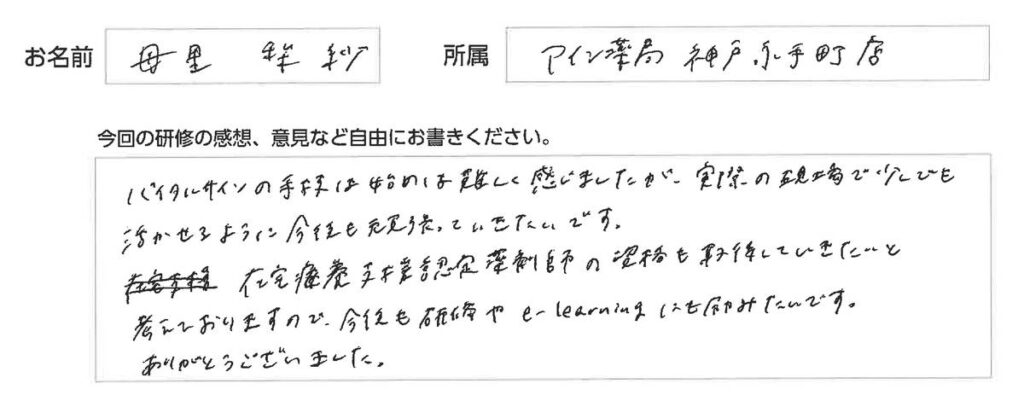 お名前 母里 梓紗 所属 アイン薬局 神戸元手町店
今回の研修の感想、意見など自由にお書きください。
バイタルサインの手技は始めは難しく感じましたが、実際の現場で少しでも
活かせるように今後も頑張っていきたいです。
在宅療養支援認定薬剤師の資格も取得していきたいと
考えておりますので、今後も研修や e-learning にも励みたいです。
ありがとうございました。